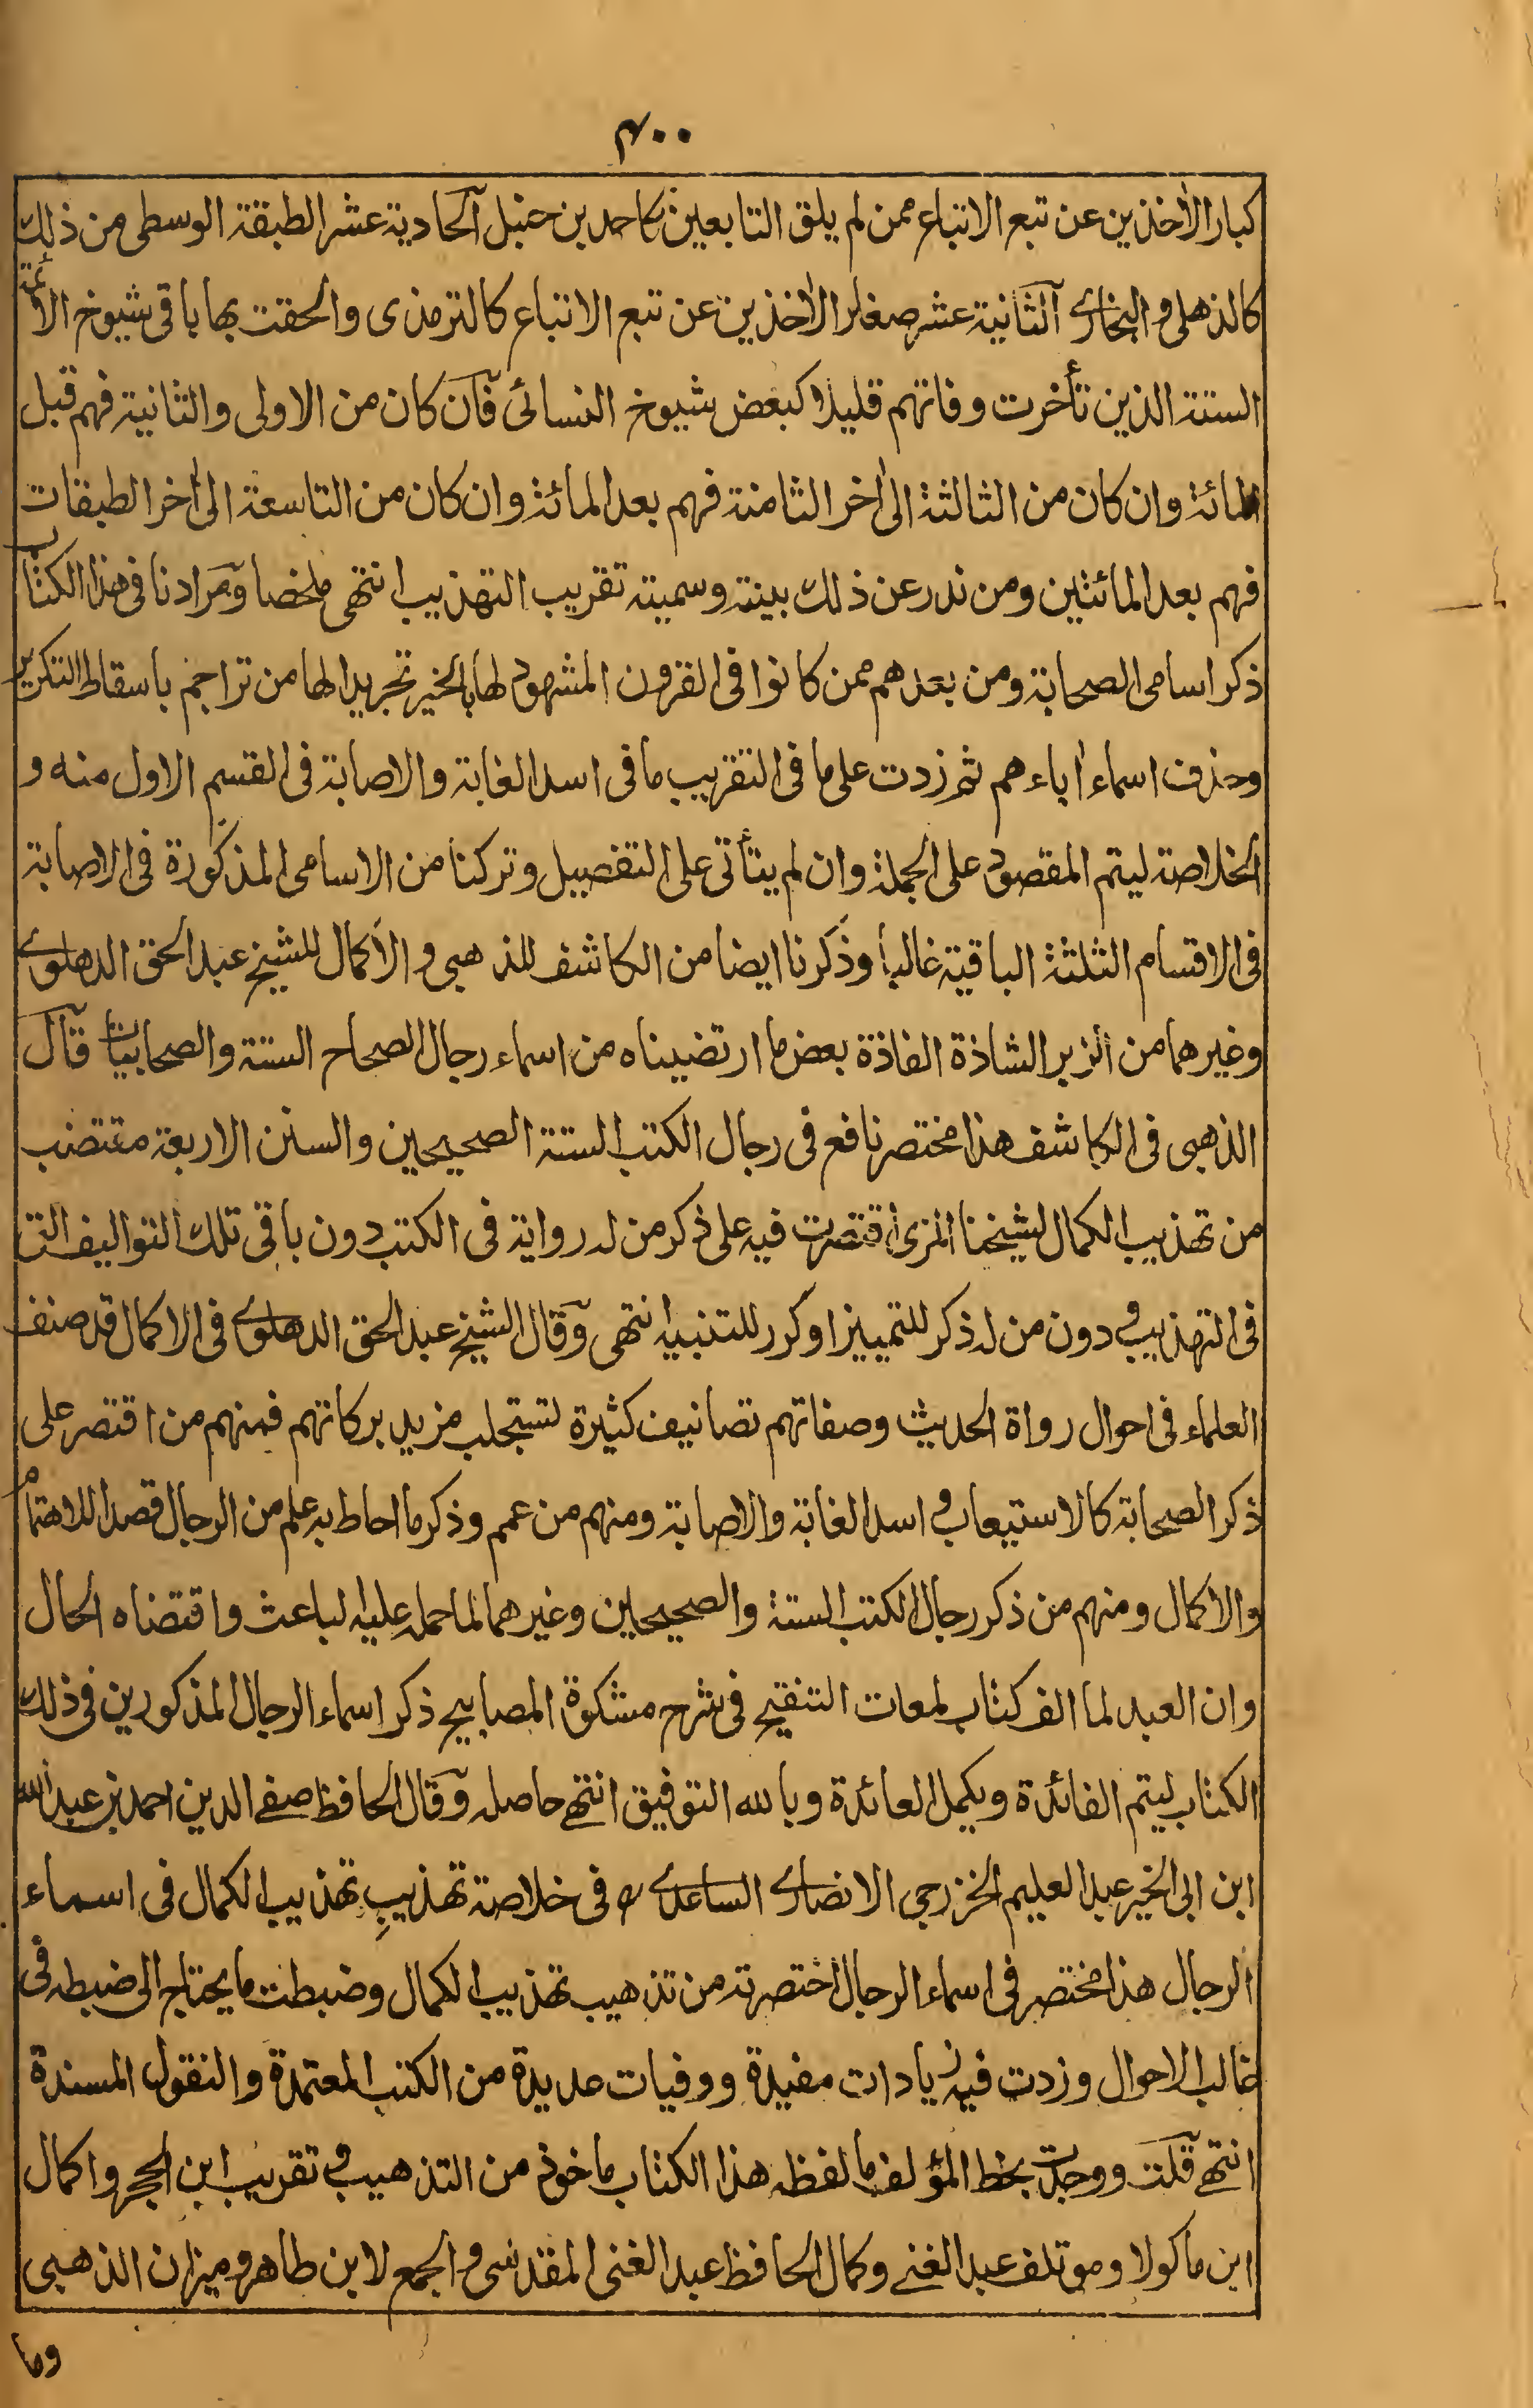 ۴۰۰
كبار الأخذين عن تبع الاتباع ممن لم يلق التابعين كاحمد بن حنبل آلحادية عشر الطبقة الوسطى من ذلك
كالذهلى و البخارى آلثانية عشر صغار الأخذين عن تبع الاتباع كالترمذى والحقت بها باقى شيوخ الائمة
الستة الذين تأخرت وفاتهم قليلا كبعض شيوخ النسائى فآن كان من الاولى والثانية فهم قبل
المائة وان كان من الثالثة الى أخر الثامنة فهم بعد المائة وان كان من التاسعة الى أخر الطبقات
فهم بعد المائتين ومن ندر عن ذلك بينته وسميته تقريب التهذيب انتهى ملخصا ومرادنا فى هذا الكتاب
ذكر اسامى الصحابة ومن بعدهم ممن كانوا فى القرون المشهود لها بالخير تجريدا لها من تراجم باسقاط التكرير
وحذف اسماء أباءهم ثم زدت على ما فى التقريب ما فى اسد الغابة والاصابة فى القسم الاول منه و
الخلاصة ليتم المقصود على الجملة وان لم يتأتى على التفصيل وتركنا من الاسامى المذكورة فى الاصابة
فى الاقسام الثلثة الباقية غالبا وذكرنا ايضا من الكاشف للذهبى و الاكمال للشيخ عبد الحق الدهلوى
وغيرهما من الزبر الشاذة الفاذة بعض ما ارتضيناه من اسماء رجال الصحاح الستة والصحابيات قآل
الذهبى فى الكاشف هذا مختصر نافع فى رجال الكتب الستة الصحيحين والسنن الاربعة مقتضب
من تهذيب الكمال لشيخنا المزى اقتصرت فيه على ذكر من له رواية فى الكتب دون باقى تلك التواليف التى
فى التهذيب و دون من له ذكر للتمييز او كرر للتنبيه انتهى وقآل الشيخ عبد الحق الدهلوى فى الاكمال قد صنف
العلماء فى احوال رواة الحديث وصفاتهم تصانيف كثيرة لتستجلب مزيد بركاتهم فمنهم من اقتصر على
ذكر الصحابة كالاستيعاب و اسد الغابة والاصابة ومنهم من عمم وذكر ما احاط به علم من الرجال قصدا للاهتمام
والاكمال ومنهم من ذكر رجال الكتب الستة والصحيحين وغيرهما لما حمله عليه لباعث واقتضاه الحال
وان العبد لما الف كتاب لمعات التنقيح فى شرح مشكوة المصابيح ذكر اسماء الرجال المذكورين فى ذلك
الكتاب ليتم الفائدة ويكمل العائدة وبالله التوفيق انتهے حاصله وقآل الحافظ صفے الدين احمد بن عبد الله
ابن ابى الخير عبد العليم الخزرجى الانصارى الساعدى فى خلاصة تهذيب تهذيب الكمال فى اسماء
الرجال هذا مختصر فى اسماء الرجال اختصرته من تذهيب تهذيب الكمال وضبطت ما يحتاج الى ضبطه فى
غالب الاحوال وزدت فيه زيادات مفيدة ووفيات عديدة من الكتب المعتمدة والنقول المسندة
انتهے قلت ووجدت بخط المؤلف ما لفظه هذا الكتاب ماخوذ من التذهيب و تقريب ابن الحجر واكمال
ابن ماكولا وموتلف عبد الغنے وكمال الحافظ عبد الغنى المقدسى و الجمع لابن طاهر و ميزان الذهبى
وما